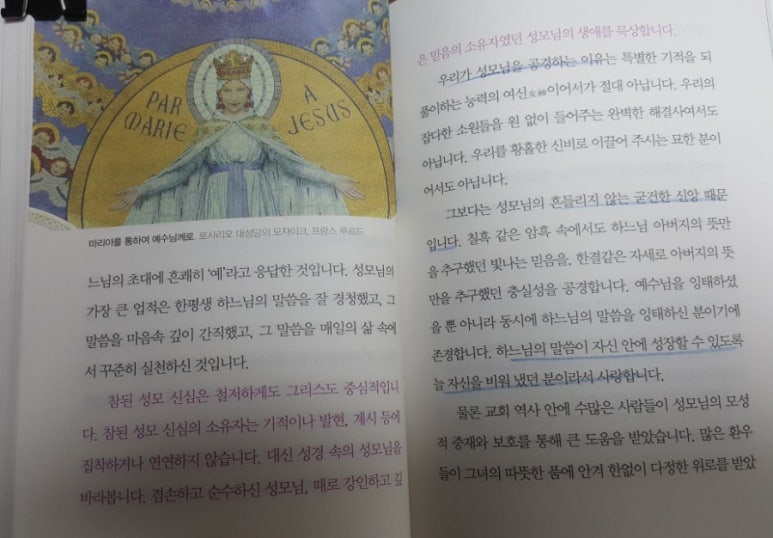 PAR
MARIE
A
JESUS
마리아를 통하여 예수님께로. 로사리오 대성당의 모자이크, 프랑스 루르드
느님의 초대에 흔쾌히 '예'라고 응답한 것입니다. 성모님의
가장 큰 업적은 한평생 하느님의 말씀을 잘 경청했고, 그
말씀을 마음속 깊이 간직했고, 그 말씀을 매일의 삶 속에
서 꾸준히 실천하신 것입니다.
참된 성모 신심은 철저하게도 그리스도 중심적입니
다. 참된 성모 신심의 소유자는 기적이나 발현, 계시 등에
집착하거나 연연하지 않습니다. 대신 성경 속의 성모님을
바라봅니다. 겸손하고 순수하신 성모님, 때로 강인하고 깊
은 믿음의 소유자였던 성모님의 생애를 묵상합니다.
우리가 성모님을 공경하는 이유는 특별한 기적을 되
풀이하는 능력의 여신女神이어서가 절대 아닙니다. 우리의
잡다한 소원들을 원 없이 들어주는 완벽한 해결사여서도
아닙니다. 우리를 황홀한 신비로 이끌어 주시는 묘한 분이
어서도 아닙니다.
그보다는 성모님의 흔들리지 않는 굳건한 신앙 때문
입니다. 칠흑 같은 암흑 속에서도 하느님 아버지의 뜻만
을 추구했던 빛나는 믿음을, 한결같은 자세로 아버지의 뜻
만을 추구했던 충실성을 공경합니다. 예수님을 잉태하셨
을 뿐 아니라 동시에 하느님의 말씀을 잉태하신 분이기에
존경합니다. 하느님의 말씀이 자신 안에 성장할 수 있도록
늘 자신을 비워 냈던 분이라서 사랑합니다.
물론 교회 역사 안에 수많은 사람들이 성모님의 모성
적 중재와 보호를 통해 큰 도움을 받았습니다. 많은 환우
들이 그녀의 따뜻한 품에 안겨 한없이 다정한 위로를 받았